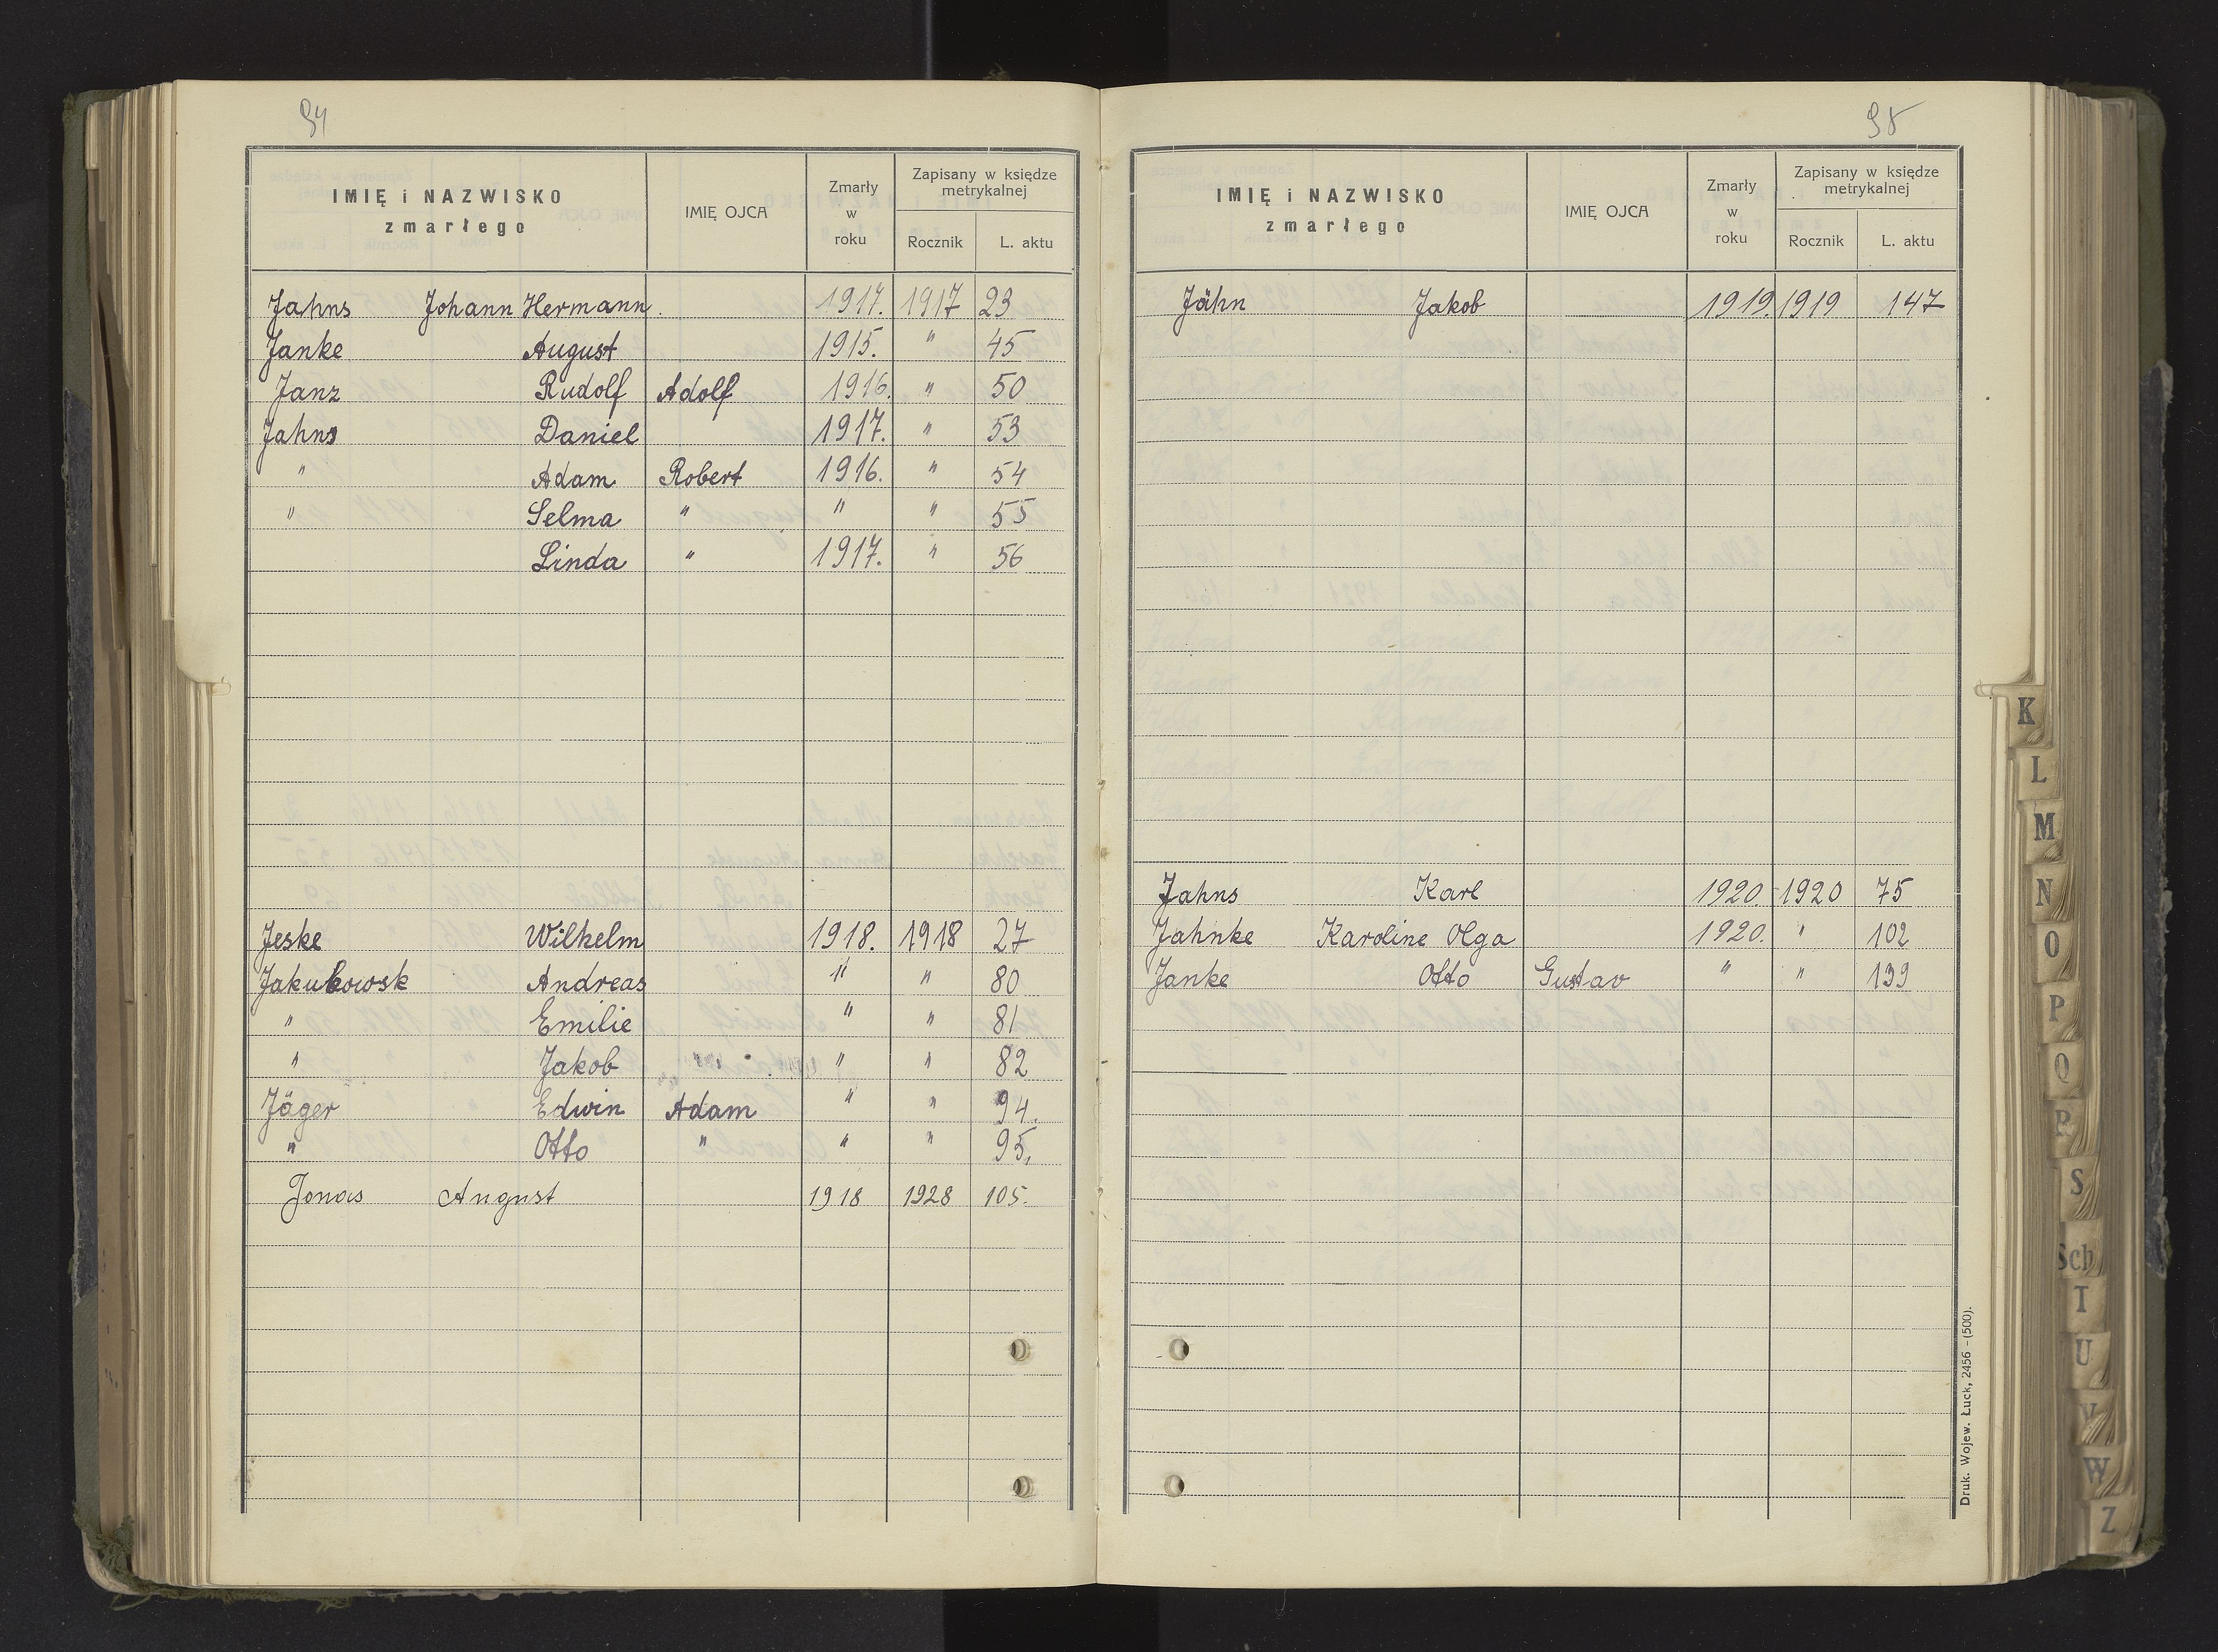 94
IMIĘ i NAZWISKO zmarłego IMIĘ OJCA Zmarły w roku Zapisany w księdze metrykalnej Rocznik L. aktu
Jahns Johann Hermann. 1917. 1917 23
Janke August 1915. " 45
Janz Rudolf Adolf 1916. " 50
Jahns Daniel 1917. " 53
" Adam Robert 1916. " 54
" Selma " " " 55
Linda " 1917. " 56
Jeske Wilhelm 1918. 1918 27
Jakubowsk Andreas " " 80
" Emilie " " 81
" Jakob " " 82
Jäger Edwin Adam " " 94.
" Otto " " " 95.
Jonas August 1918 1928 105.
95
IMIĘ i NAZWISKO zmarłego IMIĘ OJCA Zmarły w roku Zapisany w księdze metrykalnej Rocznik L. aktu
Jähn Jakob 1919. 1919 147
Jahns Karl 1920 1920 75
Jahnke Karoline Olga 1920. " 102
Janke Otto Gustav " " 139
Druk. Wojew. Łuck, 2456 - (500).
K
L
M
N
O
P
Q
R
S
Sch
T
U
V
W
Z